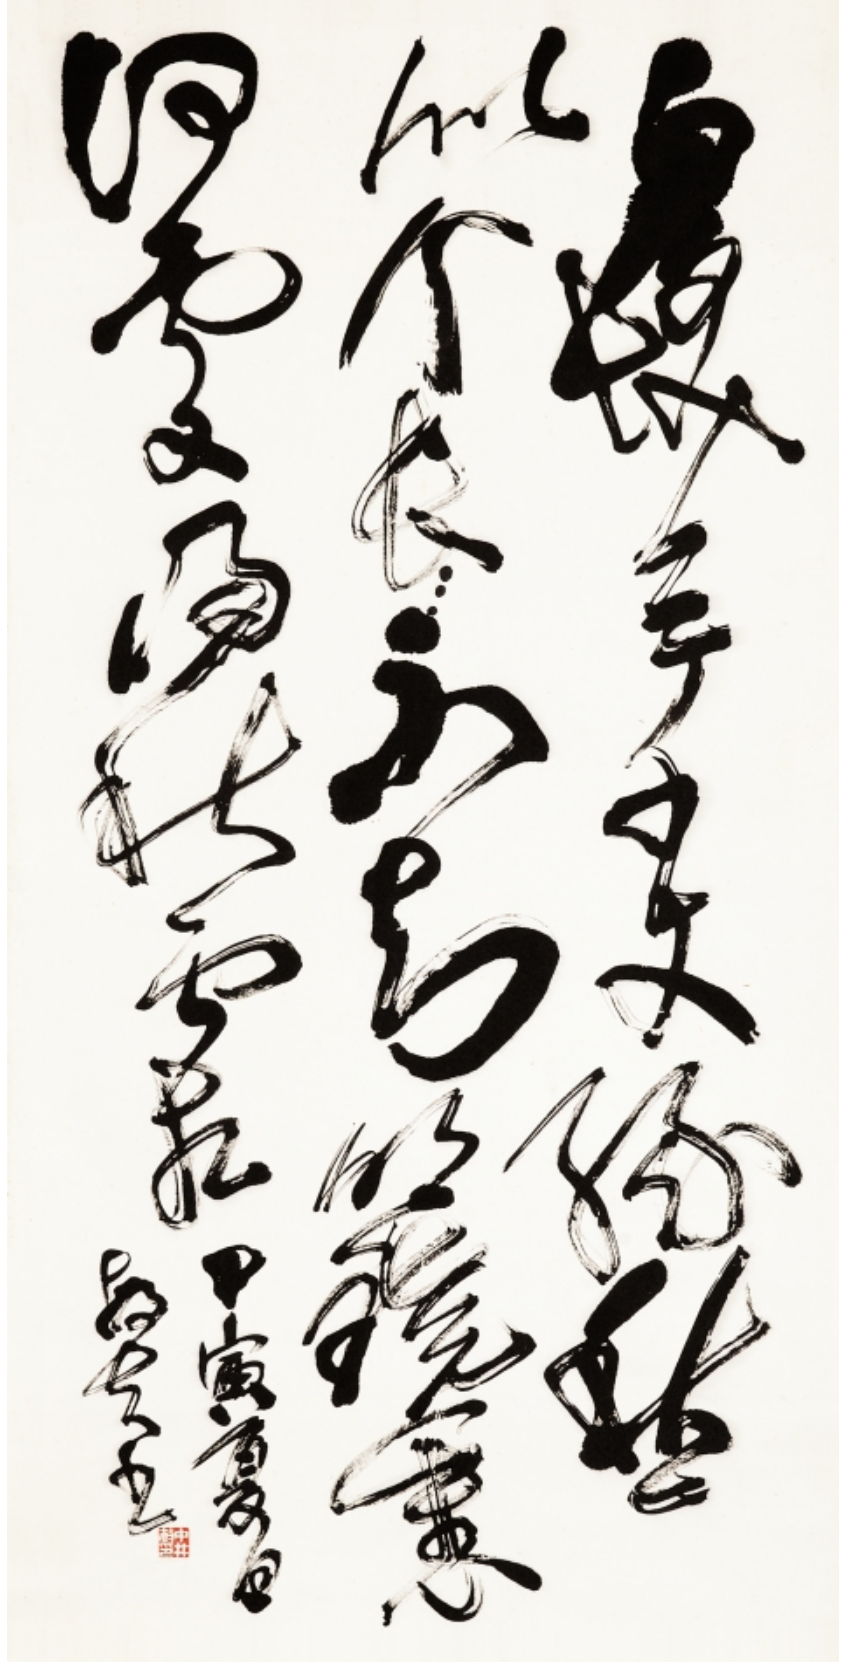 白髮三千丈緣愁
似个長不知明鏡裏
何處得秋霜
甲寅夏日